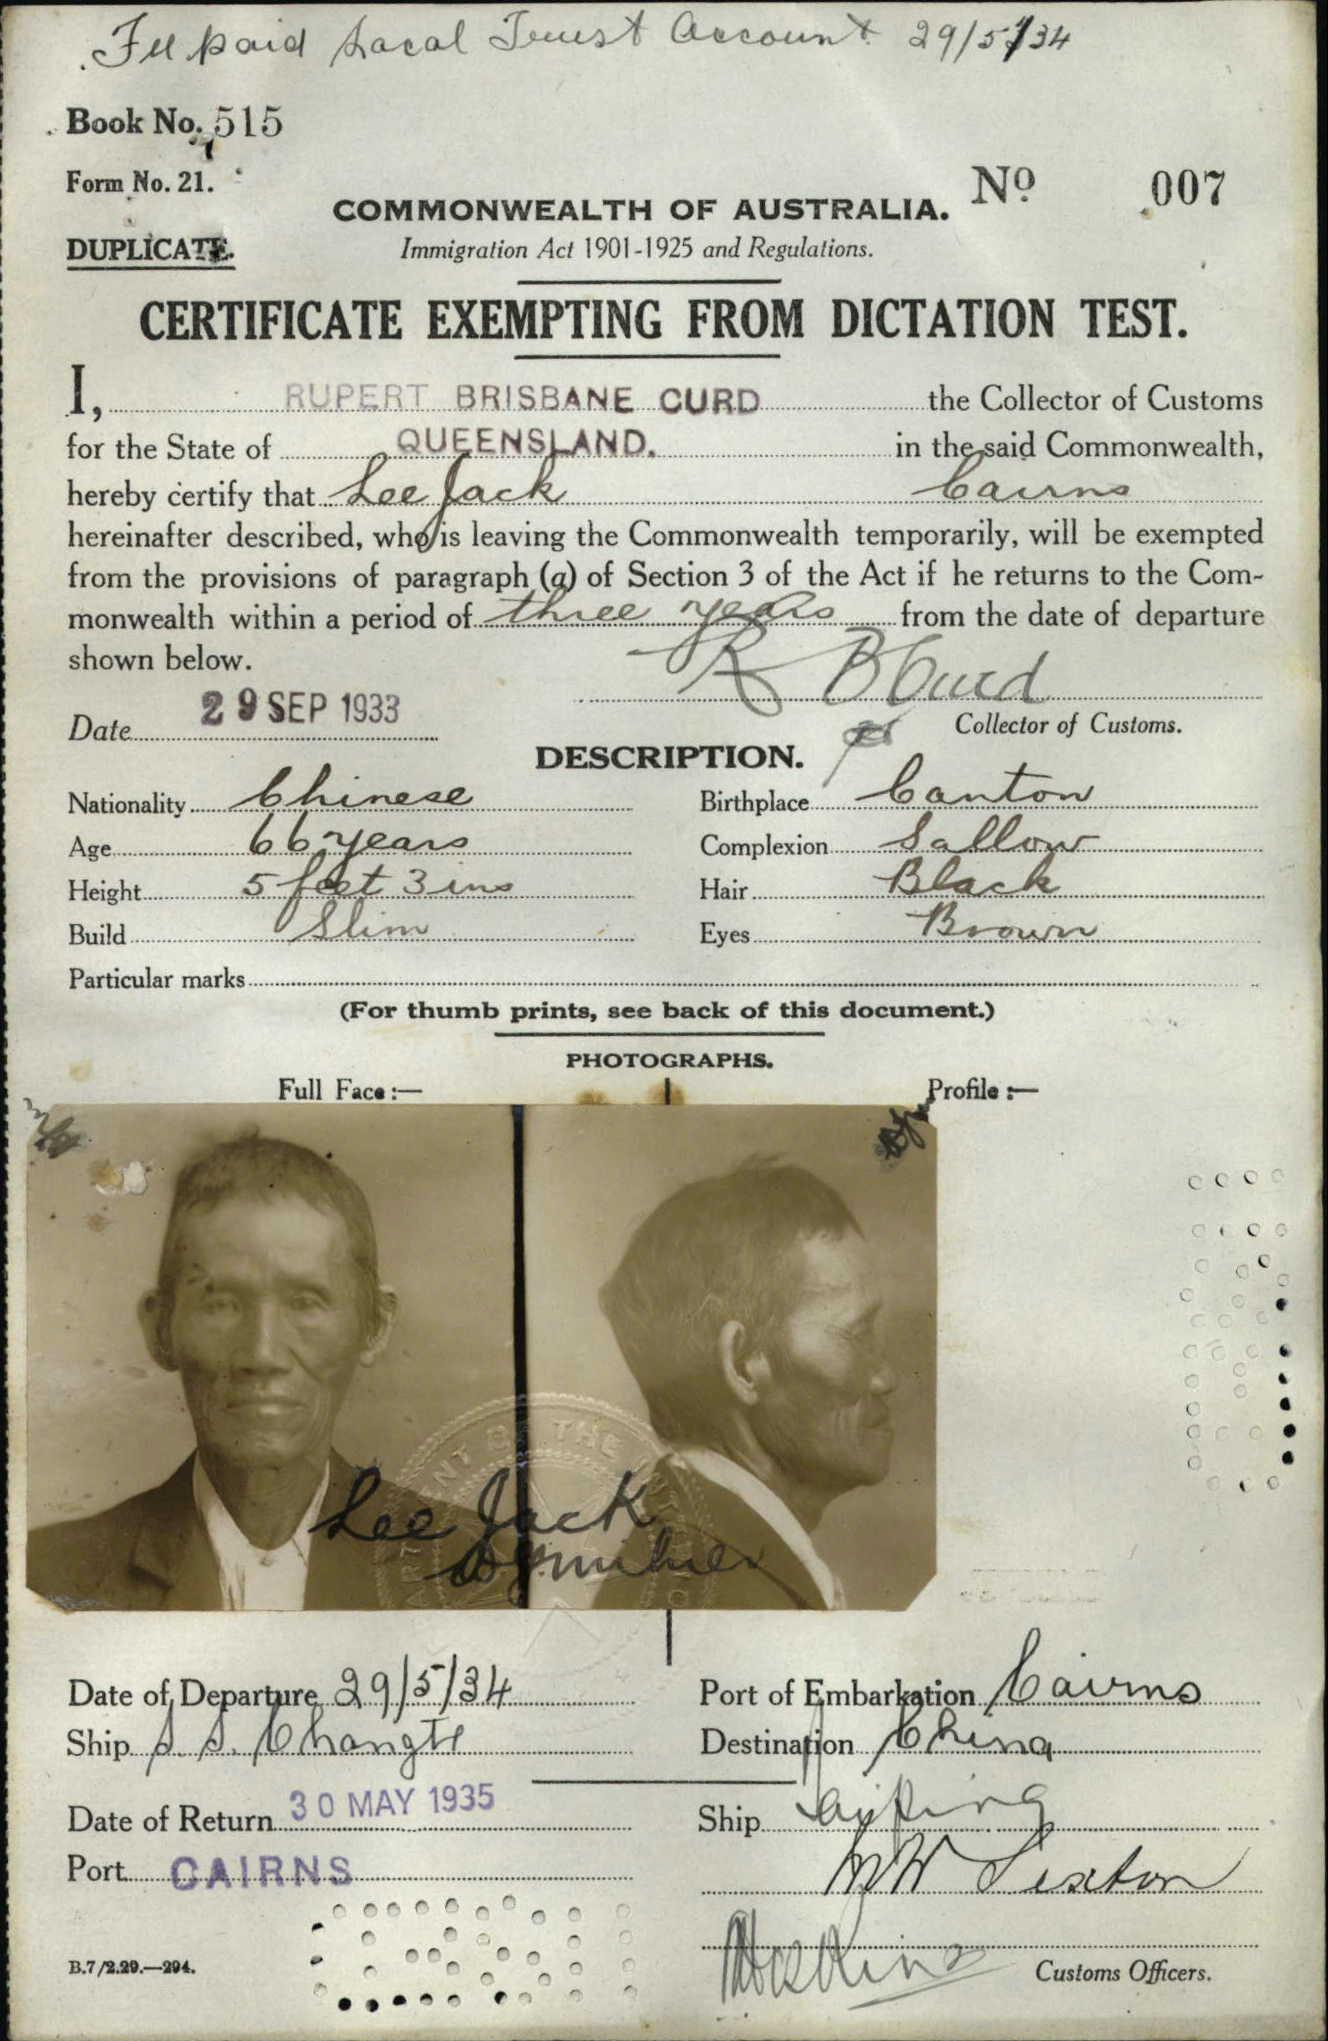 Fee paid Local Trust Account 29/5/34
Book No. 515
Form No. 21.
No 007
COMMONWEALTH OF AUSTRALIA.
DUPLICATE.
Immigration Act 1901-1925 and Regulations.
CERTIFICATE EXEMPTING FROM DICTATION TEST.
I, RUPERT BRISBANE CURD the Collector of Customs
for the State of QUEENSLAND. in the said Commonwealth,
hereby certify that Lee Jack Cairns
hereinafter described, who is leaving the Commonwealth temporarily, will be exempted
from the provisions of paragraph (a) of Section 3 of the Act if he returns to the Com-
monwealth within a period of three years from the date of departure
shown below.
R B Curd
Date 29 SEP 1933
Collector of Customs.
DESCRIPTION.
Nationality Chinese Birthplace Canton
Age 66 years Complexion Sallow
Height 5 feet 3 ins Hair Black
Build Slim Eyes Brown
Particular marks
(For thumb prints, see back of this document.)
PHOTOGRAPHS.
Full Face :— Profile :—
Lee Jack
Date of Departure 29/5/34 Port of Embarkation Cairns
Ship S. S. Changte Destination China
Date of Return 30 MAY 1935 Ship Taiping
Port CAIRNS
Sexton
Hoskins
B.7/2.29.—294.
Customs Officers.